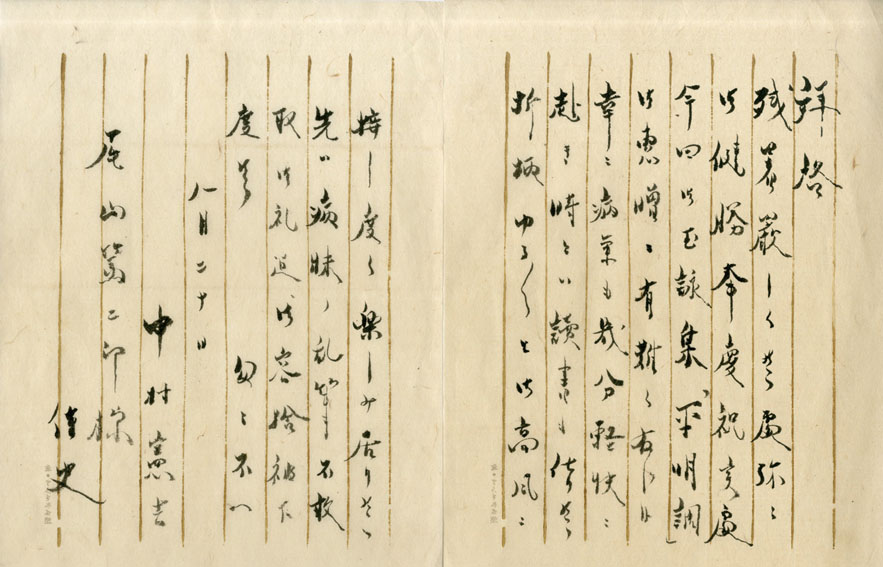 拝啓
残暑厳しく候處弥々
御健勝奉慶祝候處
今回御玉詠集「平明調」
御恵贈ニ有難く存じ候
幸ニ病気も幾分軽快ニ
赴き時には読書も仕り候
折柄ゆる〱と御高風ニ
接し度く楽しみ居り候
先は病牀ノ乱筆不敬
取御礼迄御容捨被下
度候 匆々不一
八月二十日
中村憲吉
尾山篤二郎様
侍史